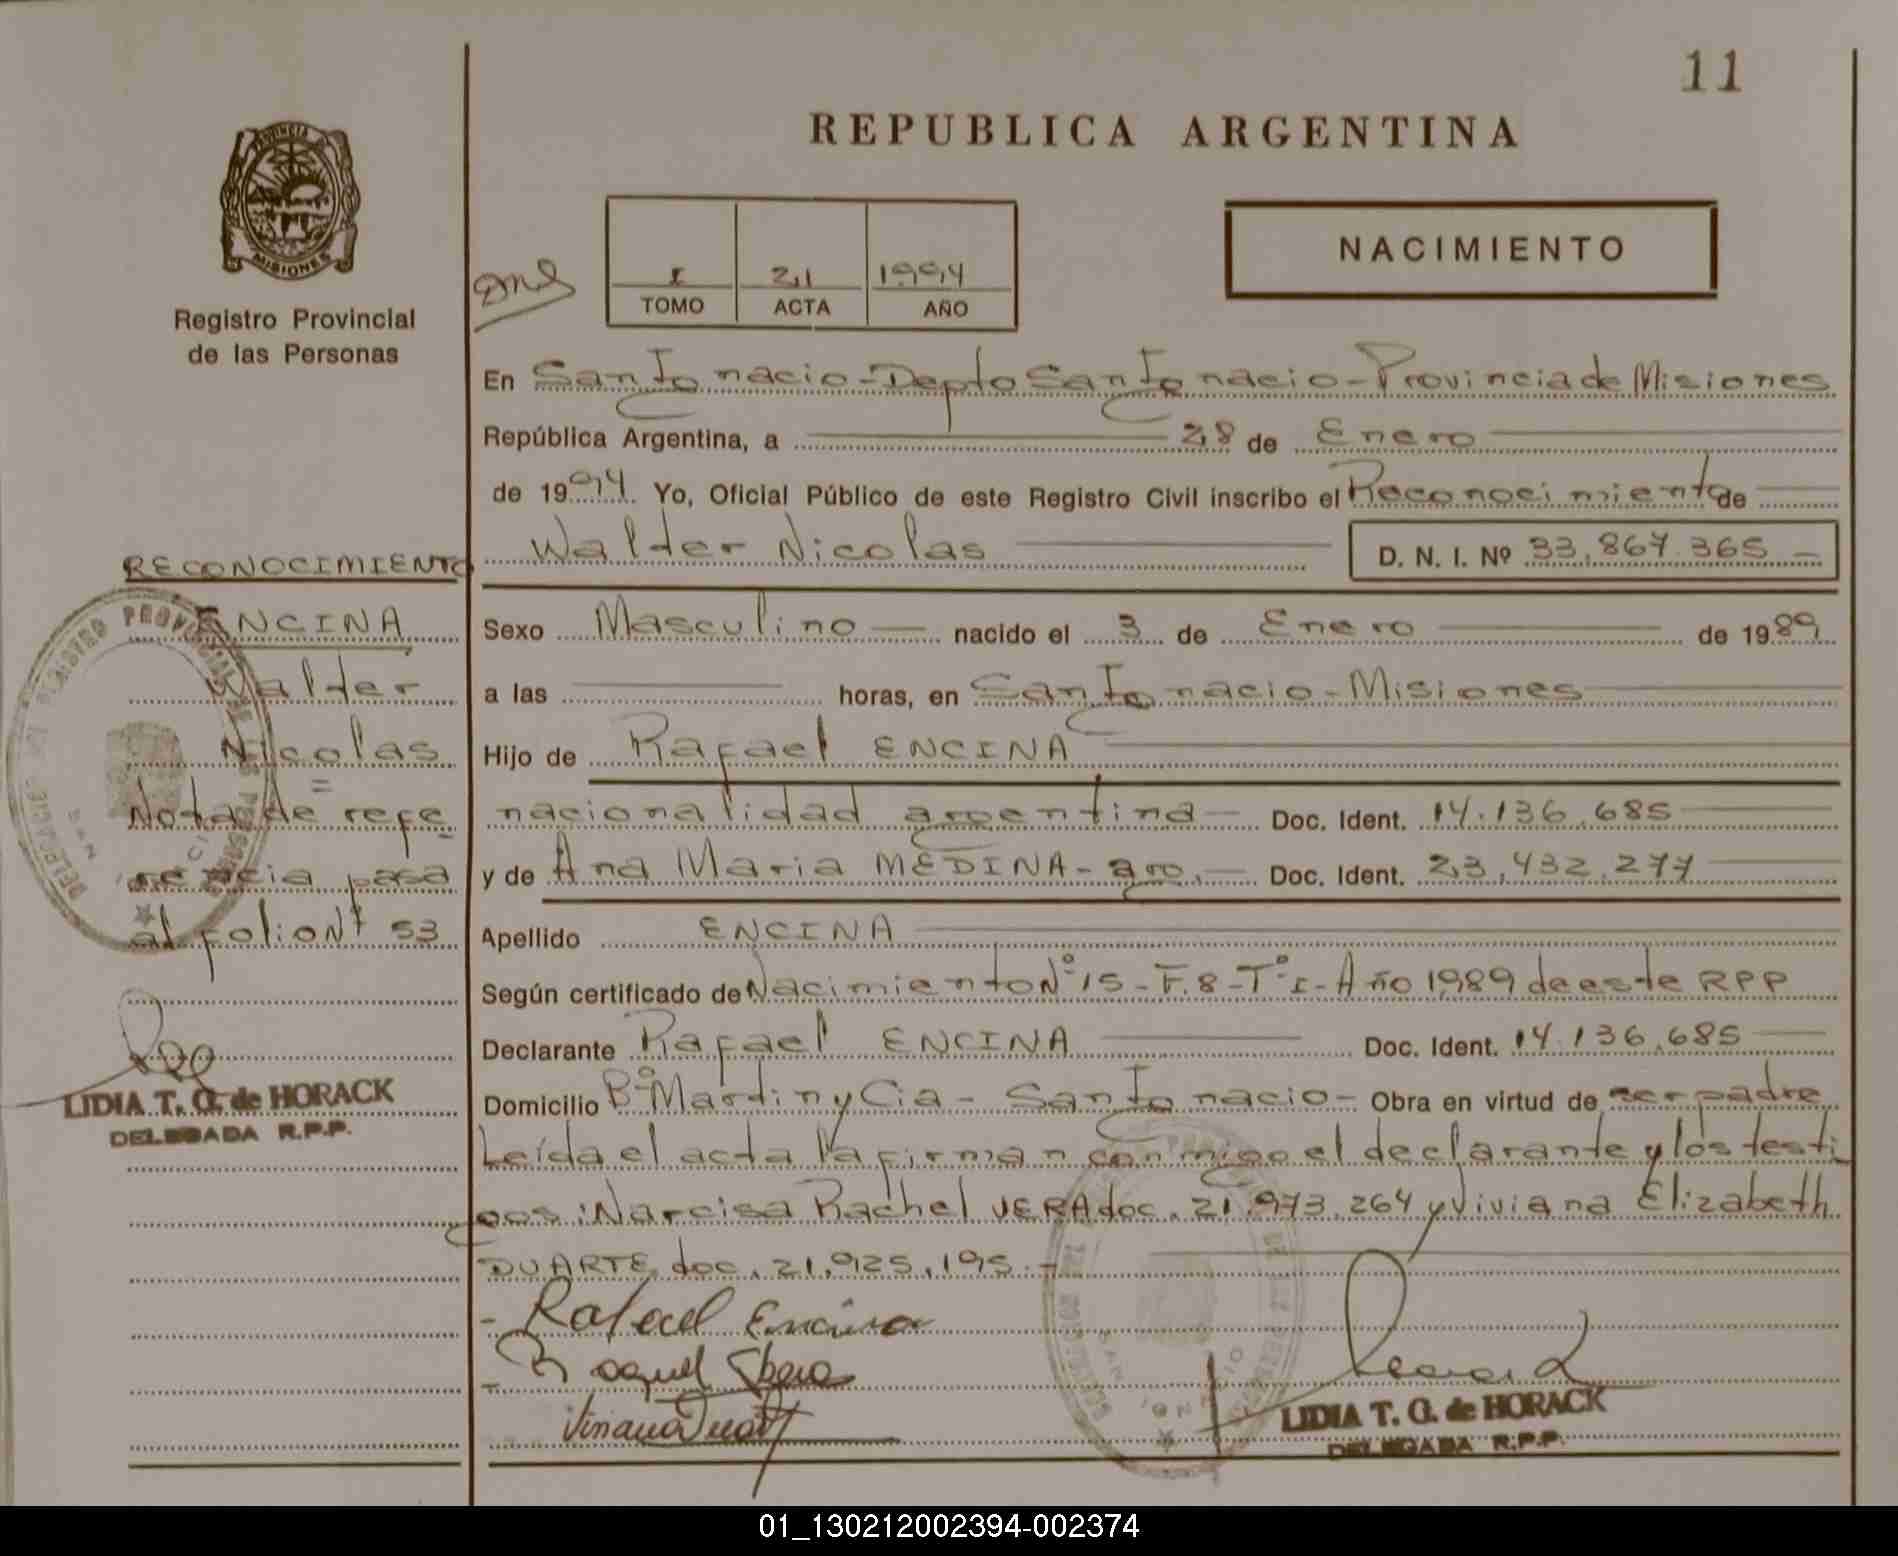 11
REPUBLICA ARGENTINA
PROVINCIA
MISIONES
Registro Provincial
de las Personas
I 21 1994
TOMO ACTA AÑO
NACIMIENTO
En San Ignacio - Depto San Ignacio - Provincia de Misiones
República Argentina, a 28 de Enero
de 1994 Yo, Oficial Público de este Registro Civil inscribo el Reconocimiento de
Walter Nicolas D. N. I. Nº 33.867.365
RECONOCIMIENTO
ENCINA
Walter
Nicolas
Nota de refe
rencia pasa
al folio Nº 53
LIDIA T. G. de HORACK
DELEGADA R.P.P.
Sexo Masculino nacido el 3 de Enero de 1989
a las horas, en San Ignacio - Misiones
Hijo de Rafael ENCINA
nacionalidad argentina Doc. Ident. 14.136.685
y de Ana Maria MEDINA - arg. Doc. Ident. 23.432.277
Apellido ENCINA
Según certificado de Nacimiento Nº 15 - F. 8 - Tº I - Año 1989 de este RPP
Declarante Rafael ENCINA Doc. Ident. 14.136.685
Domicilio Bº Martin y Cia - San Ignacio - Obra en virtud de ser padre
Leída el acta la firman conmigo el declarante y los testi
gos: Narcisa Rachel VERA doc. 21.973.264 y Viviana Elizabeth
DUARTE doc. 21.925.195.-
Rafael Encina
Viviana Duart
LIDIA T. G. de HORACK
DELEGADA R.P.P.
01_130212002394-002374